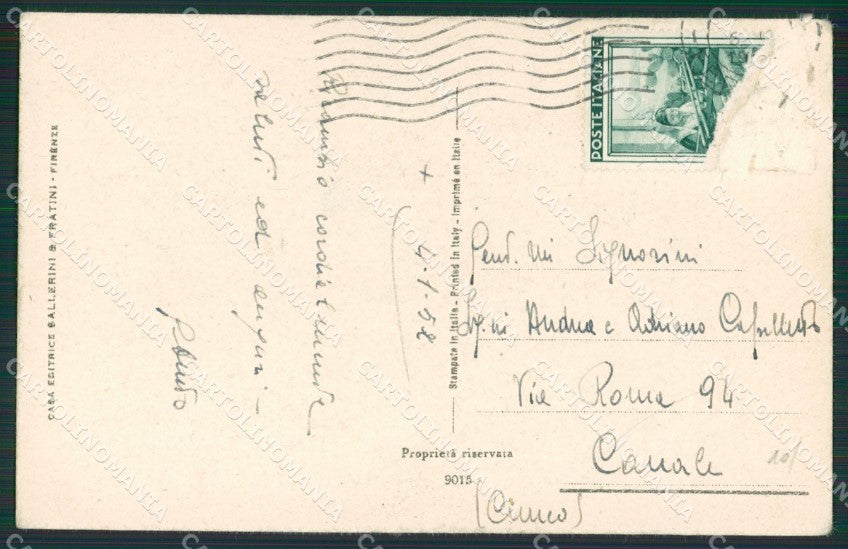 CASA EDITRICE BALLERINI & FRATINI - FIRENZE
saluti ed auguri -
cordialmente
+ 4-1-52
Stampata in Italia - Printed in Italy - Imprimé en Italie
POSTE ITALIANE
Gent.mi Signorini
Sig.ni Andrea e Adriano
Via Roma 94
Canale
(Cuneo)
10/
Proprietà riservata
9015
CARTOLINOMANIA